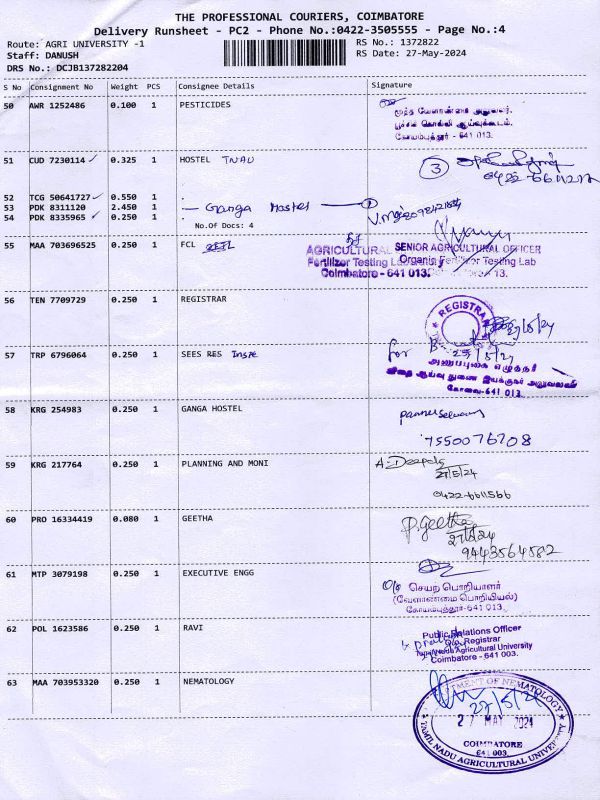 THE PROFESSIONAL COURIERS, COIMBATORE
Delivery Runsheet - PC2 - Phone No.:0422-3505555 - Page No.:4
Route: AGRI UNIVERSITY -1 RS No.: 1372822
Staff: DANUSH RS Date: 27-May-2024
DRS No.: DCJB137282204
S No Consignment No Weight PCS Consignee Details Signature
50 AWR 1252486 0.100 1 PESTICIDES
மூத்த வேளாண்மை அலுவலர்,
பூச்சிக் கொல்லி ஆய்வுக்கூடம்,
கோயம்புத்தூர் - 641 013.
51 CUD 7230114 0.325 1 HOSTEL TNAU 3
52 TCG 50641727 0.550 1
53 PDK 8311120 2.450 1 Ganga Hostel
54 PDK 8335965 0.250 1
No.Of Docs: 4
55 MAA 703696525 0.250 1 FCL
AGRICULTURAL SENIOR AGRICULTURAL OFFICER
Fertilizer Testing Laboratory Organic Fertilizer Testing Lab
Coimbatore - 641 013. 13.
56 TEN 7709729 0.250 1 REGISTRAR
REGISTRAR
27/5/24
57 TRP 6796064 0.250 1 SEES RES Inspe
for
27/5/24
அனுப்புகை எழுத்தர்
விதை ஆய்வு துணை இயக்குநர் அலுவலகம்
கோவை-641 013.
58 KRG 254983 0.250 1 GANGA HOSTEL
panneerselvam
7550076708
59 KRG 217764 0.250 1 PLANNING AND MONI
A. Deepa
27/5/24
0422-6611566
60 PRO 16334419 0.080 1 GEETHA
P. Geetha
27/5/24
9443564582
61 MTP 3079198 0.250 1 EXECUTIVE ENGG
O/o செயற் பொறியாளர்
(வேளாண்மை பொறியியல்)
கோயம்புத்தூர்-641 013.
62 POL 1623586 0.250 1 RAVI
Public Relations Officer
O/o Registrar
Tamil Nadu Agricultural University
Coimbatore - 641 003.
63 MAA 703953320 0.250 1 NEMATOLOGY
DEPARTMENT OF NEMATOLOGY
27/5/24
27 MAY 2024
COIMBATORE
641 003.
TAMIL NADU AGRICULTURAL UNIVERSITY